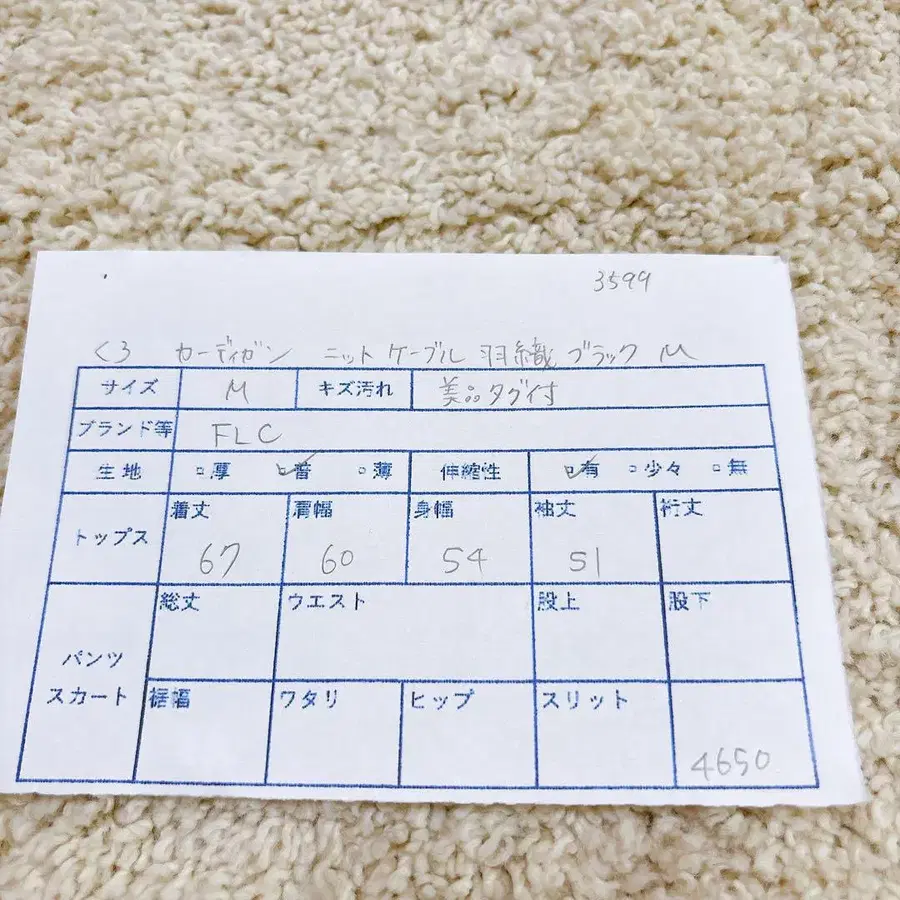 3599
く3 カーディガン ニット ケーブル 羽織 ブラック M
サイズ M キズ汚れ 美品タグ付
ブランド等 FLC
生地 □厚 ☑普 □薄 伸縮性 ☑有 □少々 □無
トップス 着丈 肩幅 身幅 袖丈 裄丈
67 60 54 51
パンツ スカート
総丈 ウエスト 股上 股下
裾幅 ワタリ ヒップ スリット
4650